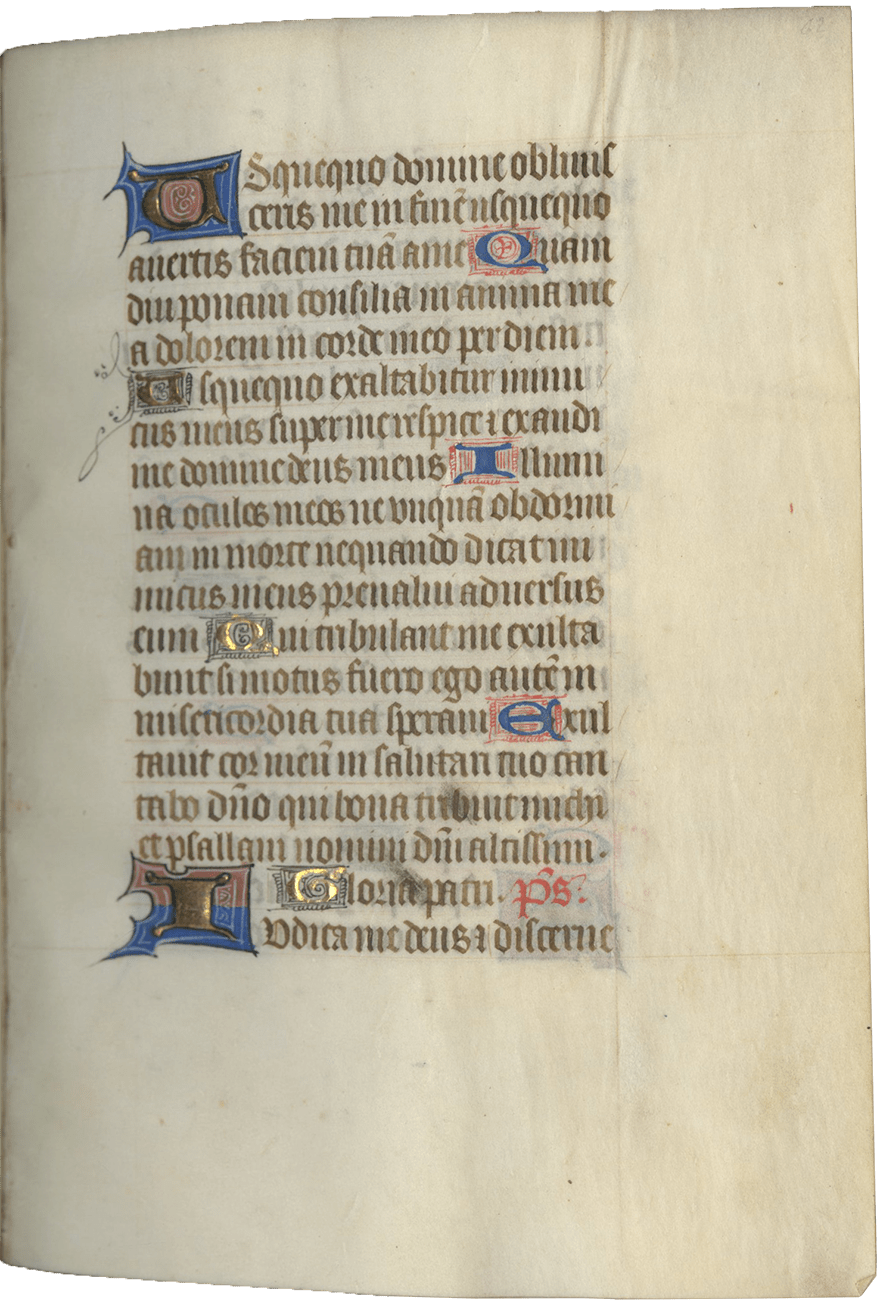 62
USquequo domine obliuis
ceris me in finē usquequo
auertis faciem tuā a me Quam
diu ponam consilia in anima me
a dolorem in corde meo per diem.
Usquequo exaltabitur inimi
cus meus super me respice ⁊ exaudi
me domine deus meus Illumi
na oculos meos ne vnquā obdormi
am in morte nequando dicat ini
micus meus preualui aduersus
eum Qui tribulant me exulta
bunt si motus fuero ego autē in
misericordia tua speraui Exul
tauit cor meū in salutari tuo can
tabo dño qui bona tribuit michi
et psallam nomini dñi altissimi.
Gloria patri. p̄s.
IUdica me deus ⁊ discerne